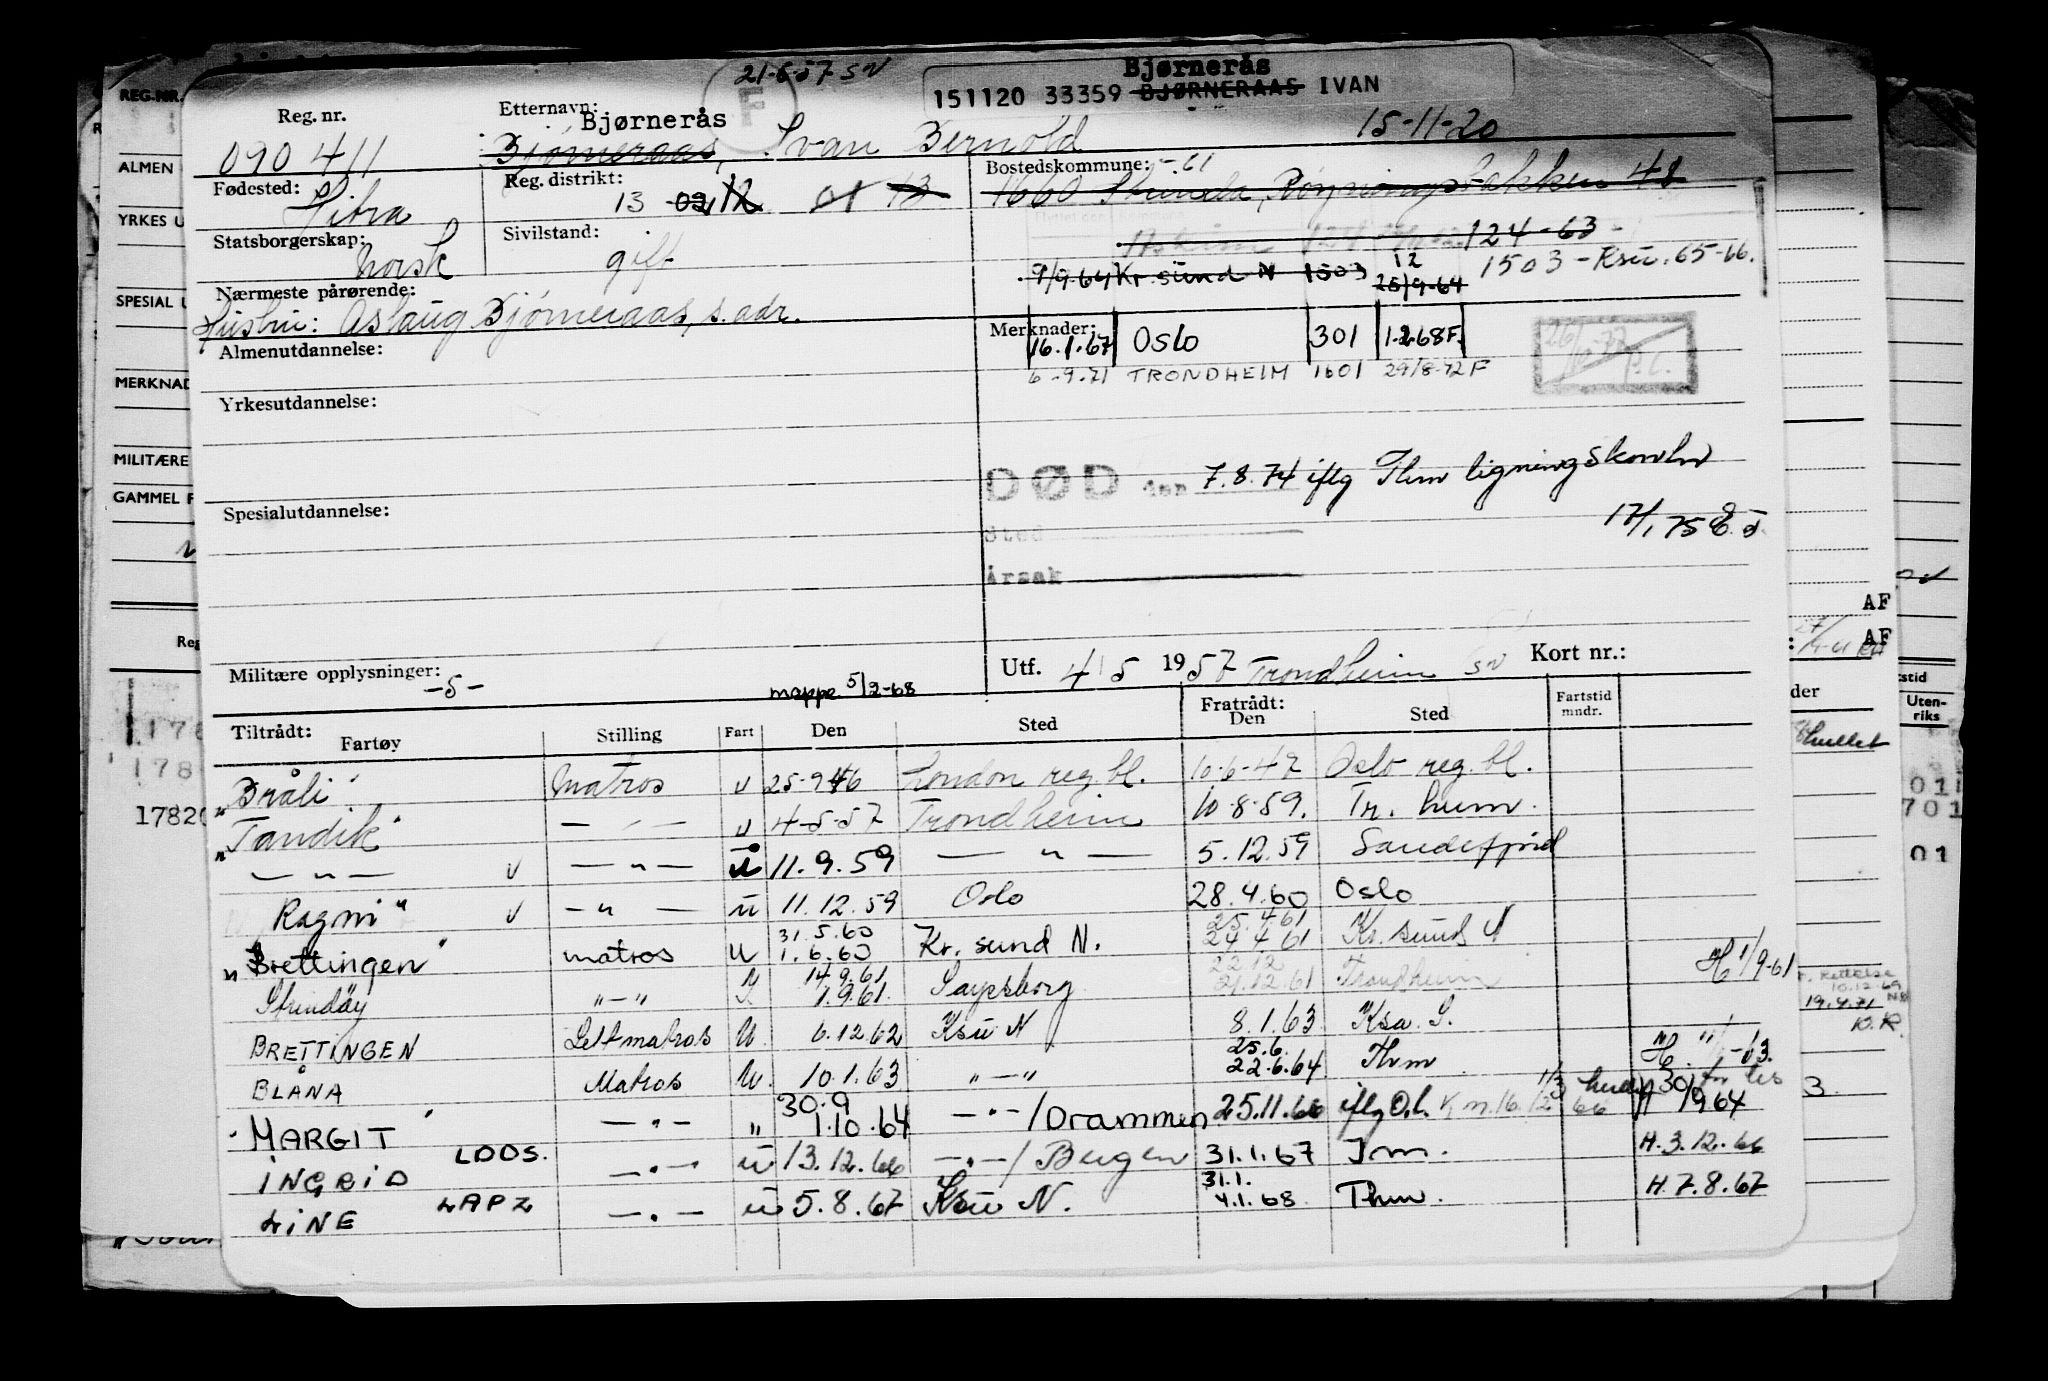 21-6-57 SN
Bjørnerås
151120 33359 BJØRNERAAS IVAN
F
Reg. nr. 090 411
Etternavn: Bjørnerås
Bjørneraas, Ivan Bernold 15-11-20
Fødested: Hitra
Reg. distrikt: 13 02 12 01 13
Bostedskommune: -61
1660 Strinda, 48
Statsborgerskap: norsk
Sivilstand: gift
Askim 124 124-63
9/9-64 Kr. sund N 1503 12 25/9-64
1503 - Ksu. 65-66.
Nærmeste pårørende:
Hustru: Aslaug Bjørneraas, s. adr.
Merknader:
16.1.67 Oslo 301 1.2.68 F.
6-9.71 TRONDHEIM 1601 29/8-72 F
Almenutdannelse:
Yrkesutdannelse:
DØD den 7.8.74 iflg Thm ligningskontor
17/1 75
Sted
Årsak
Spesialutdannelse:
Militære opplysninger: -5-
mappe 5/2-68
Utf. 4/5 1957 Trondheim SN Kort nr.:
Tiltrådt: Fartøy Stilling Fart Den Sted Fratrådt: Den Sted Fartstid mndr.
"Bråli" matros u 25-9-46 London reg. bl. 10-6-47 Oslo reg. bl.
"Tandik" — " — u 4-5-57 Trondheim 10-8-59. Tr. heim.
— " — u — " — u 11.9.59 — " — 5.12.59 Sandefjord
Ragni" u — " — u 11.12.59 Oslo 28.4.60 Oslo
"Brettingen" matros U 31.5.60 1.6.60 Kr. sund N. 25.4.61 24.4.61 Kr. sund N
Strindøy " — " 14.9.61 1.9.61 Sarpsborg 22.12 21.12.61 Trondheim H 1/9-61
BRETTINGEN Lettmatros U. 6.12.62 Ksu N 8.1.63 Ksa. S.
BLÅNA Matros U. 10.1.63 " — " 25.6. 22.6.64 Thm
"MARGIT" — " — " 30.9 1.10.64 — " — / Drammen 25.11.66 iflg O.l. H 30/9 64
INGRID LDOS. — " — u 13.12.66 — " — / Bergen 31.1.67 H. 3.12.66
LINE LAPZ — " — u 5.8.67 Ksu N. 31.1. 4.1.68 Thm. H. 7.8.67
REG.-NR.
ALMEN
YRKES U
SPESIAL U
MERKNAD
MILITÆRE
GAMMEL F
Reg
178
178
17820
AF
AF
stid
der
Uten-
riks
hullet
01
701
01
10.12-69
19.4.71
3.